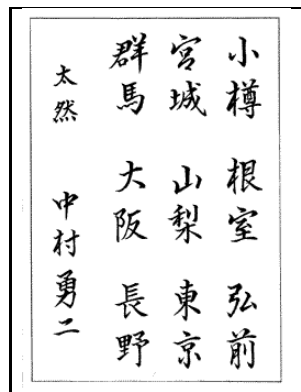 小樽 根室 弘前
宮城 山梨 東京
群馬 大阪 長野
太然 中村勇二